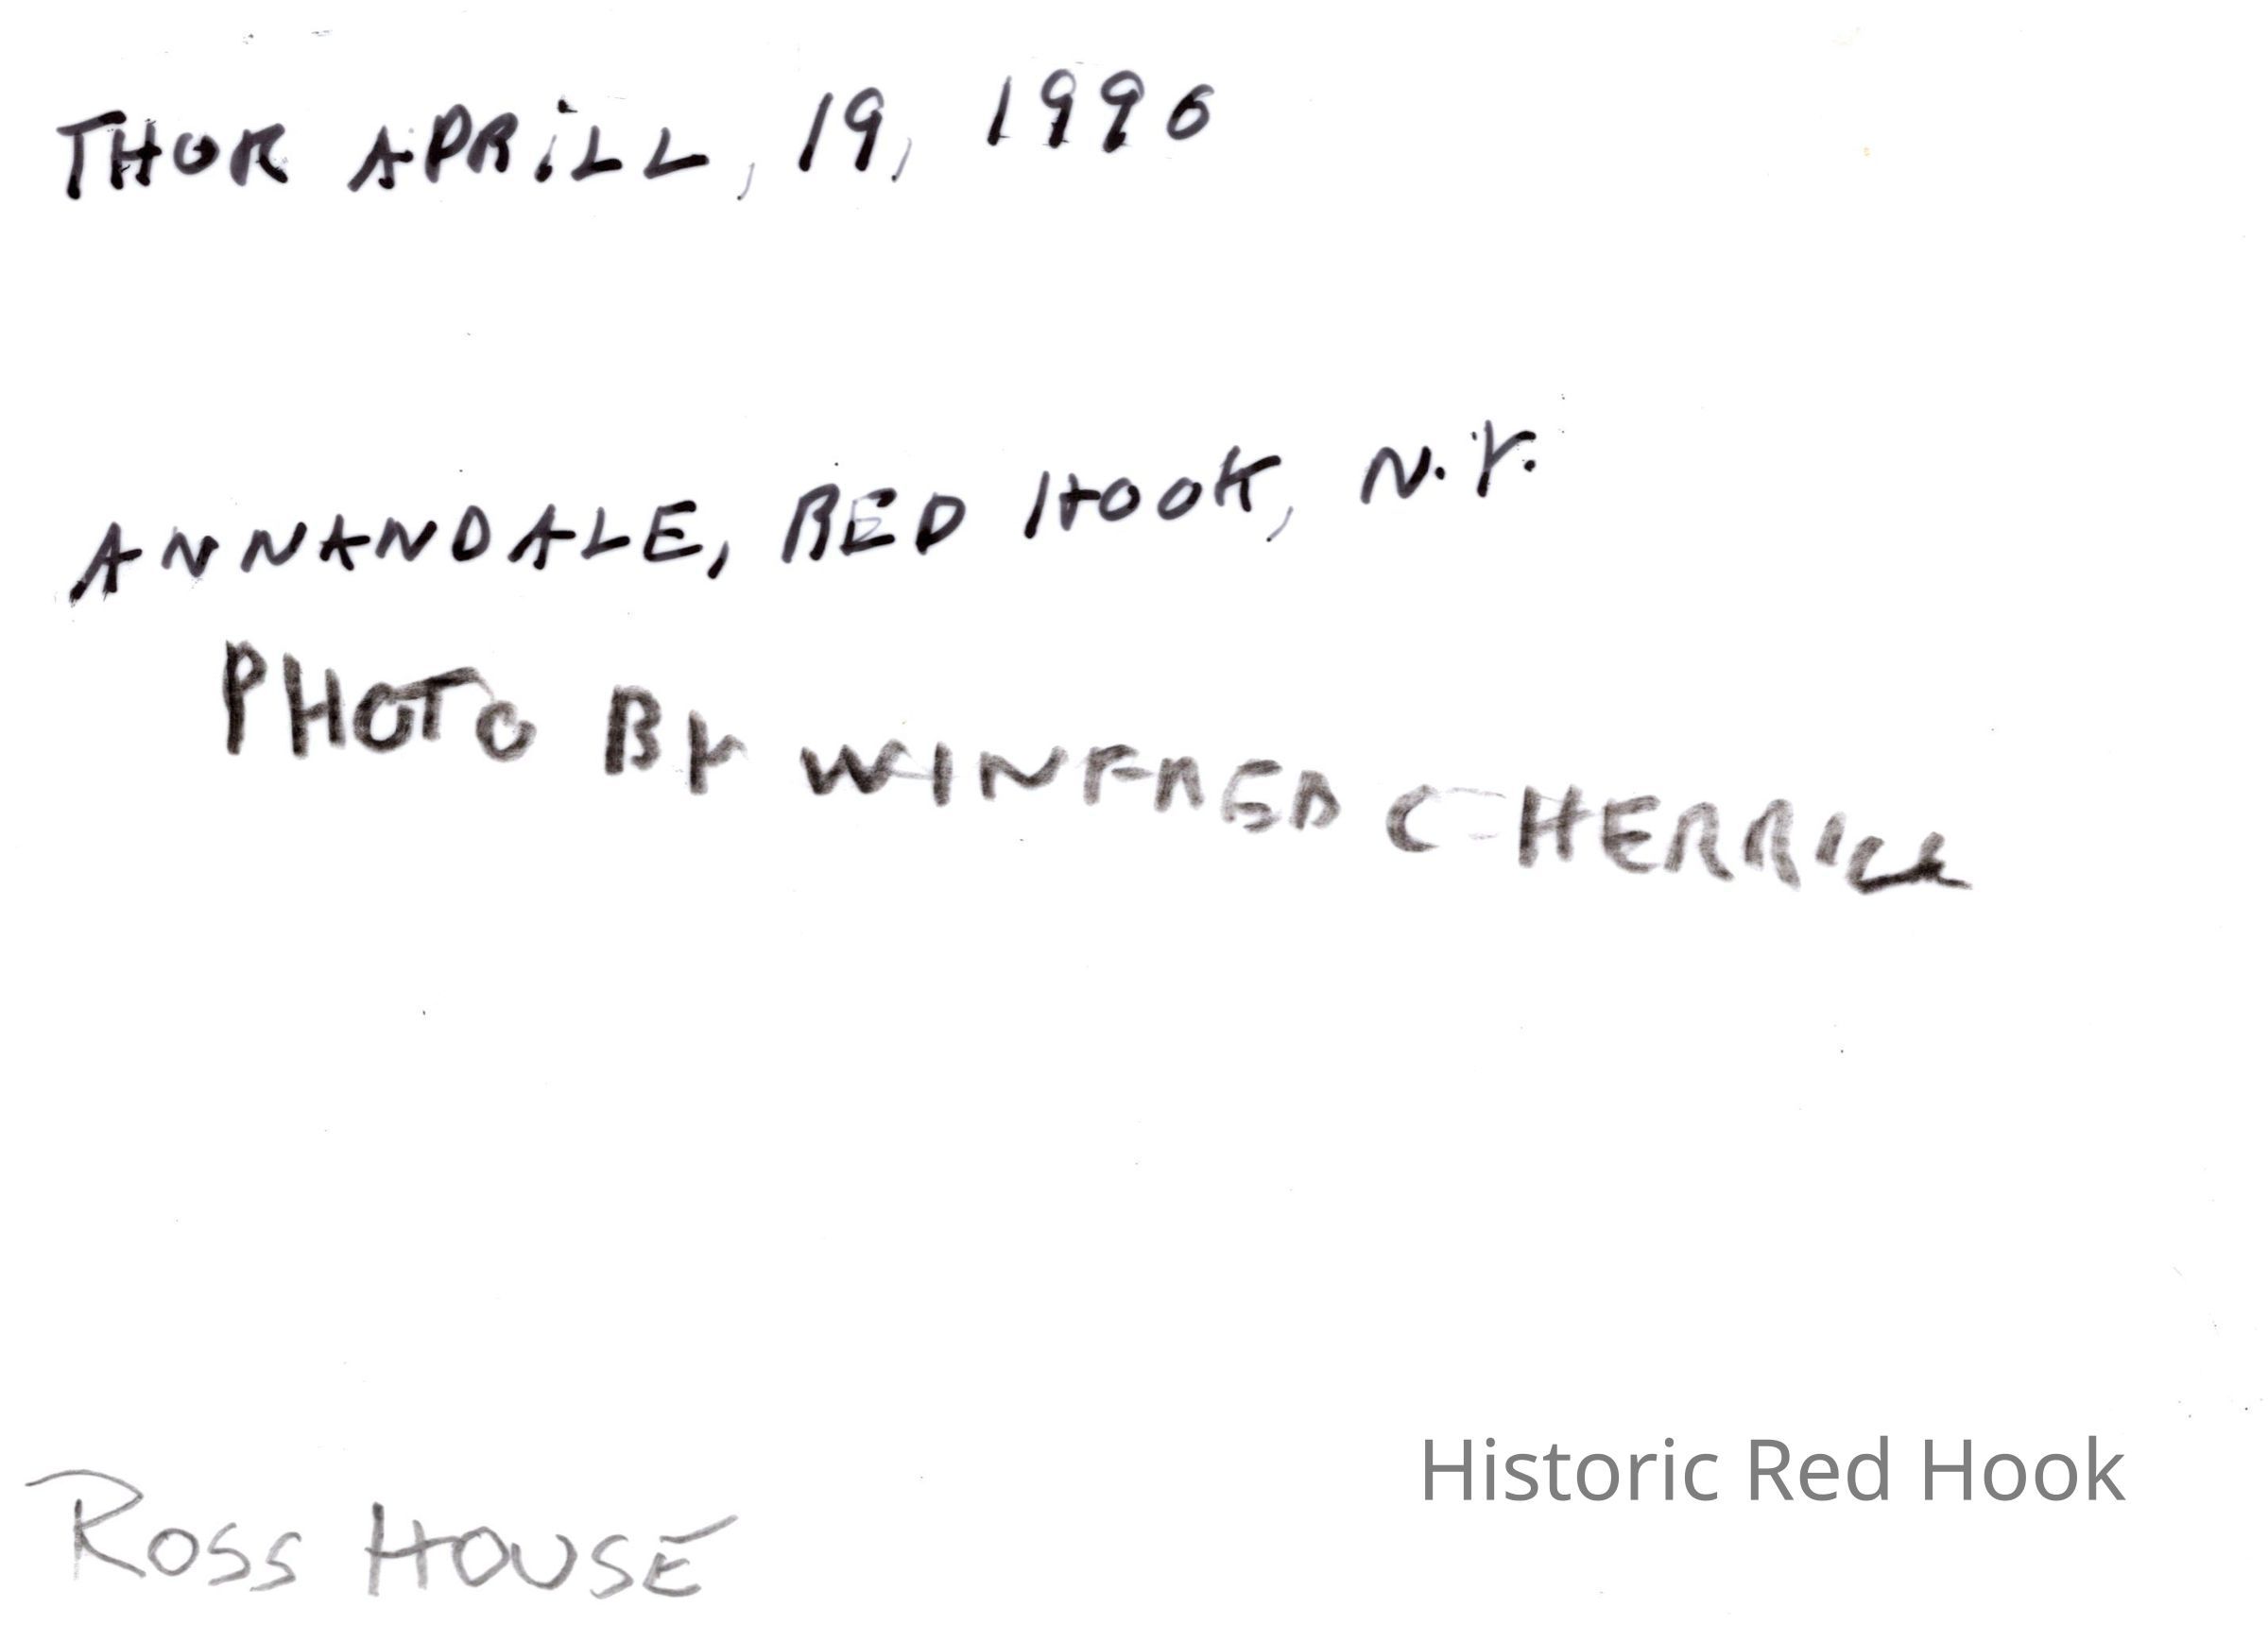 THOR APRiLL, 19, 1996
ANNANDALE, RED HOOK, N.Y.
PHOTO BY WINFRED C HERRICK
Historic Red Hook
ROSS HOUSE